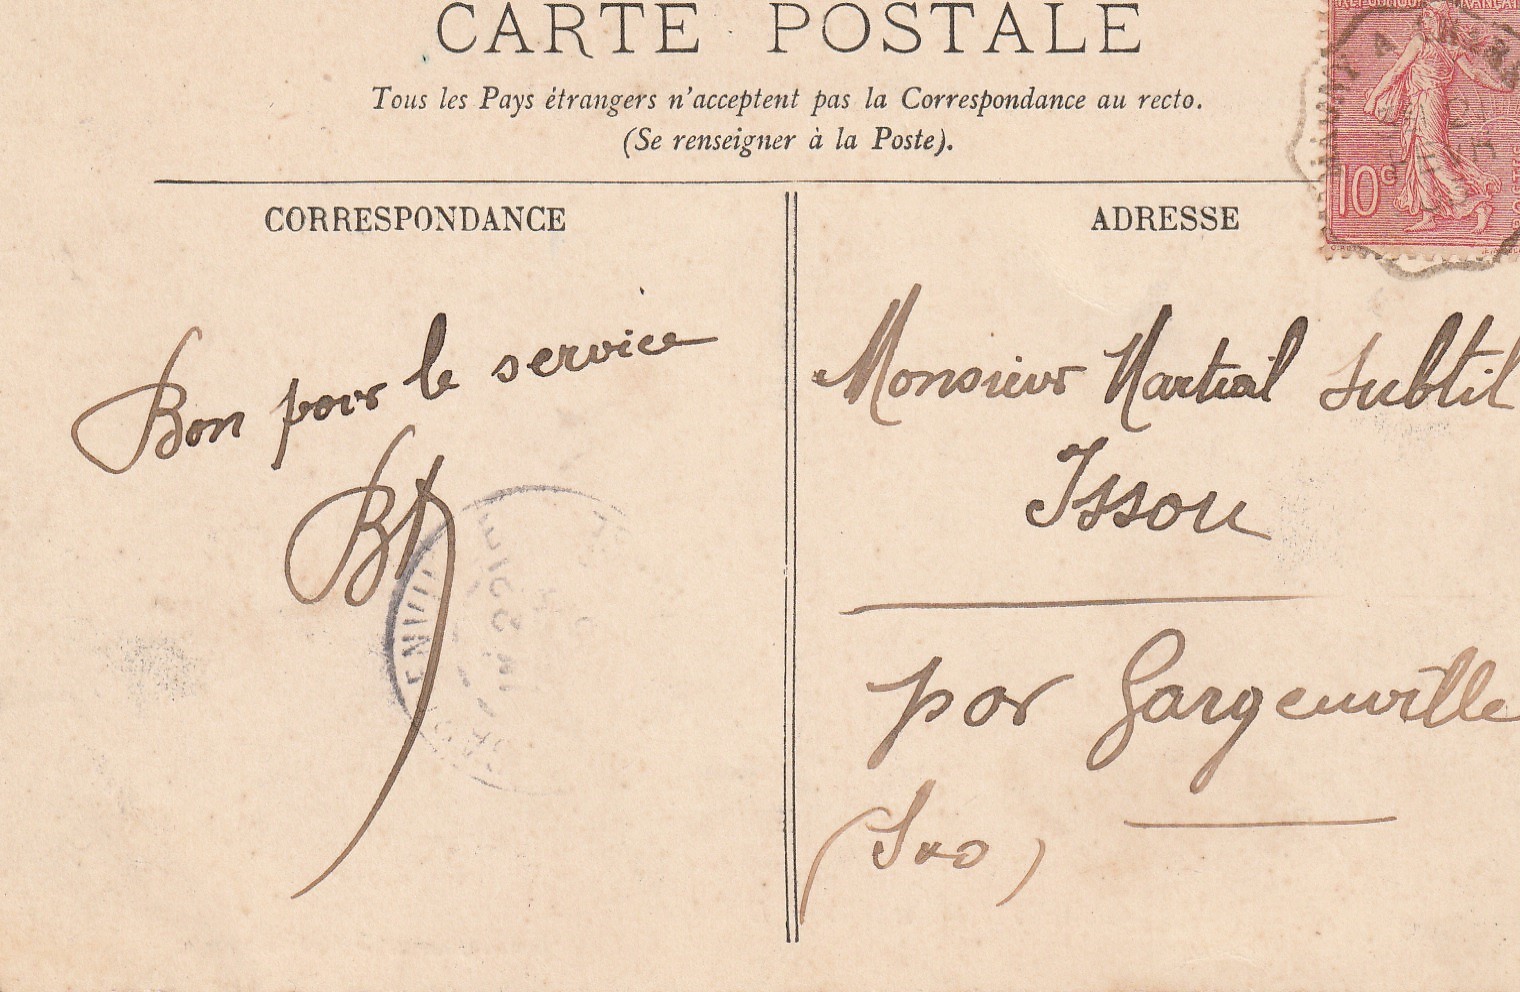 CARTE POSTALE
Tous les Pays étrangers n'acceptent pas la Correspondance au recto.
(Se renseigner à la Poste).
CORRESPONDANCE
ADRESSE
RÉPUBLIQUE FRANÇAISE
10c
Bon pour le service
Monsieur Martial Subtil
Issou
par Gargenville
(S&O)